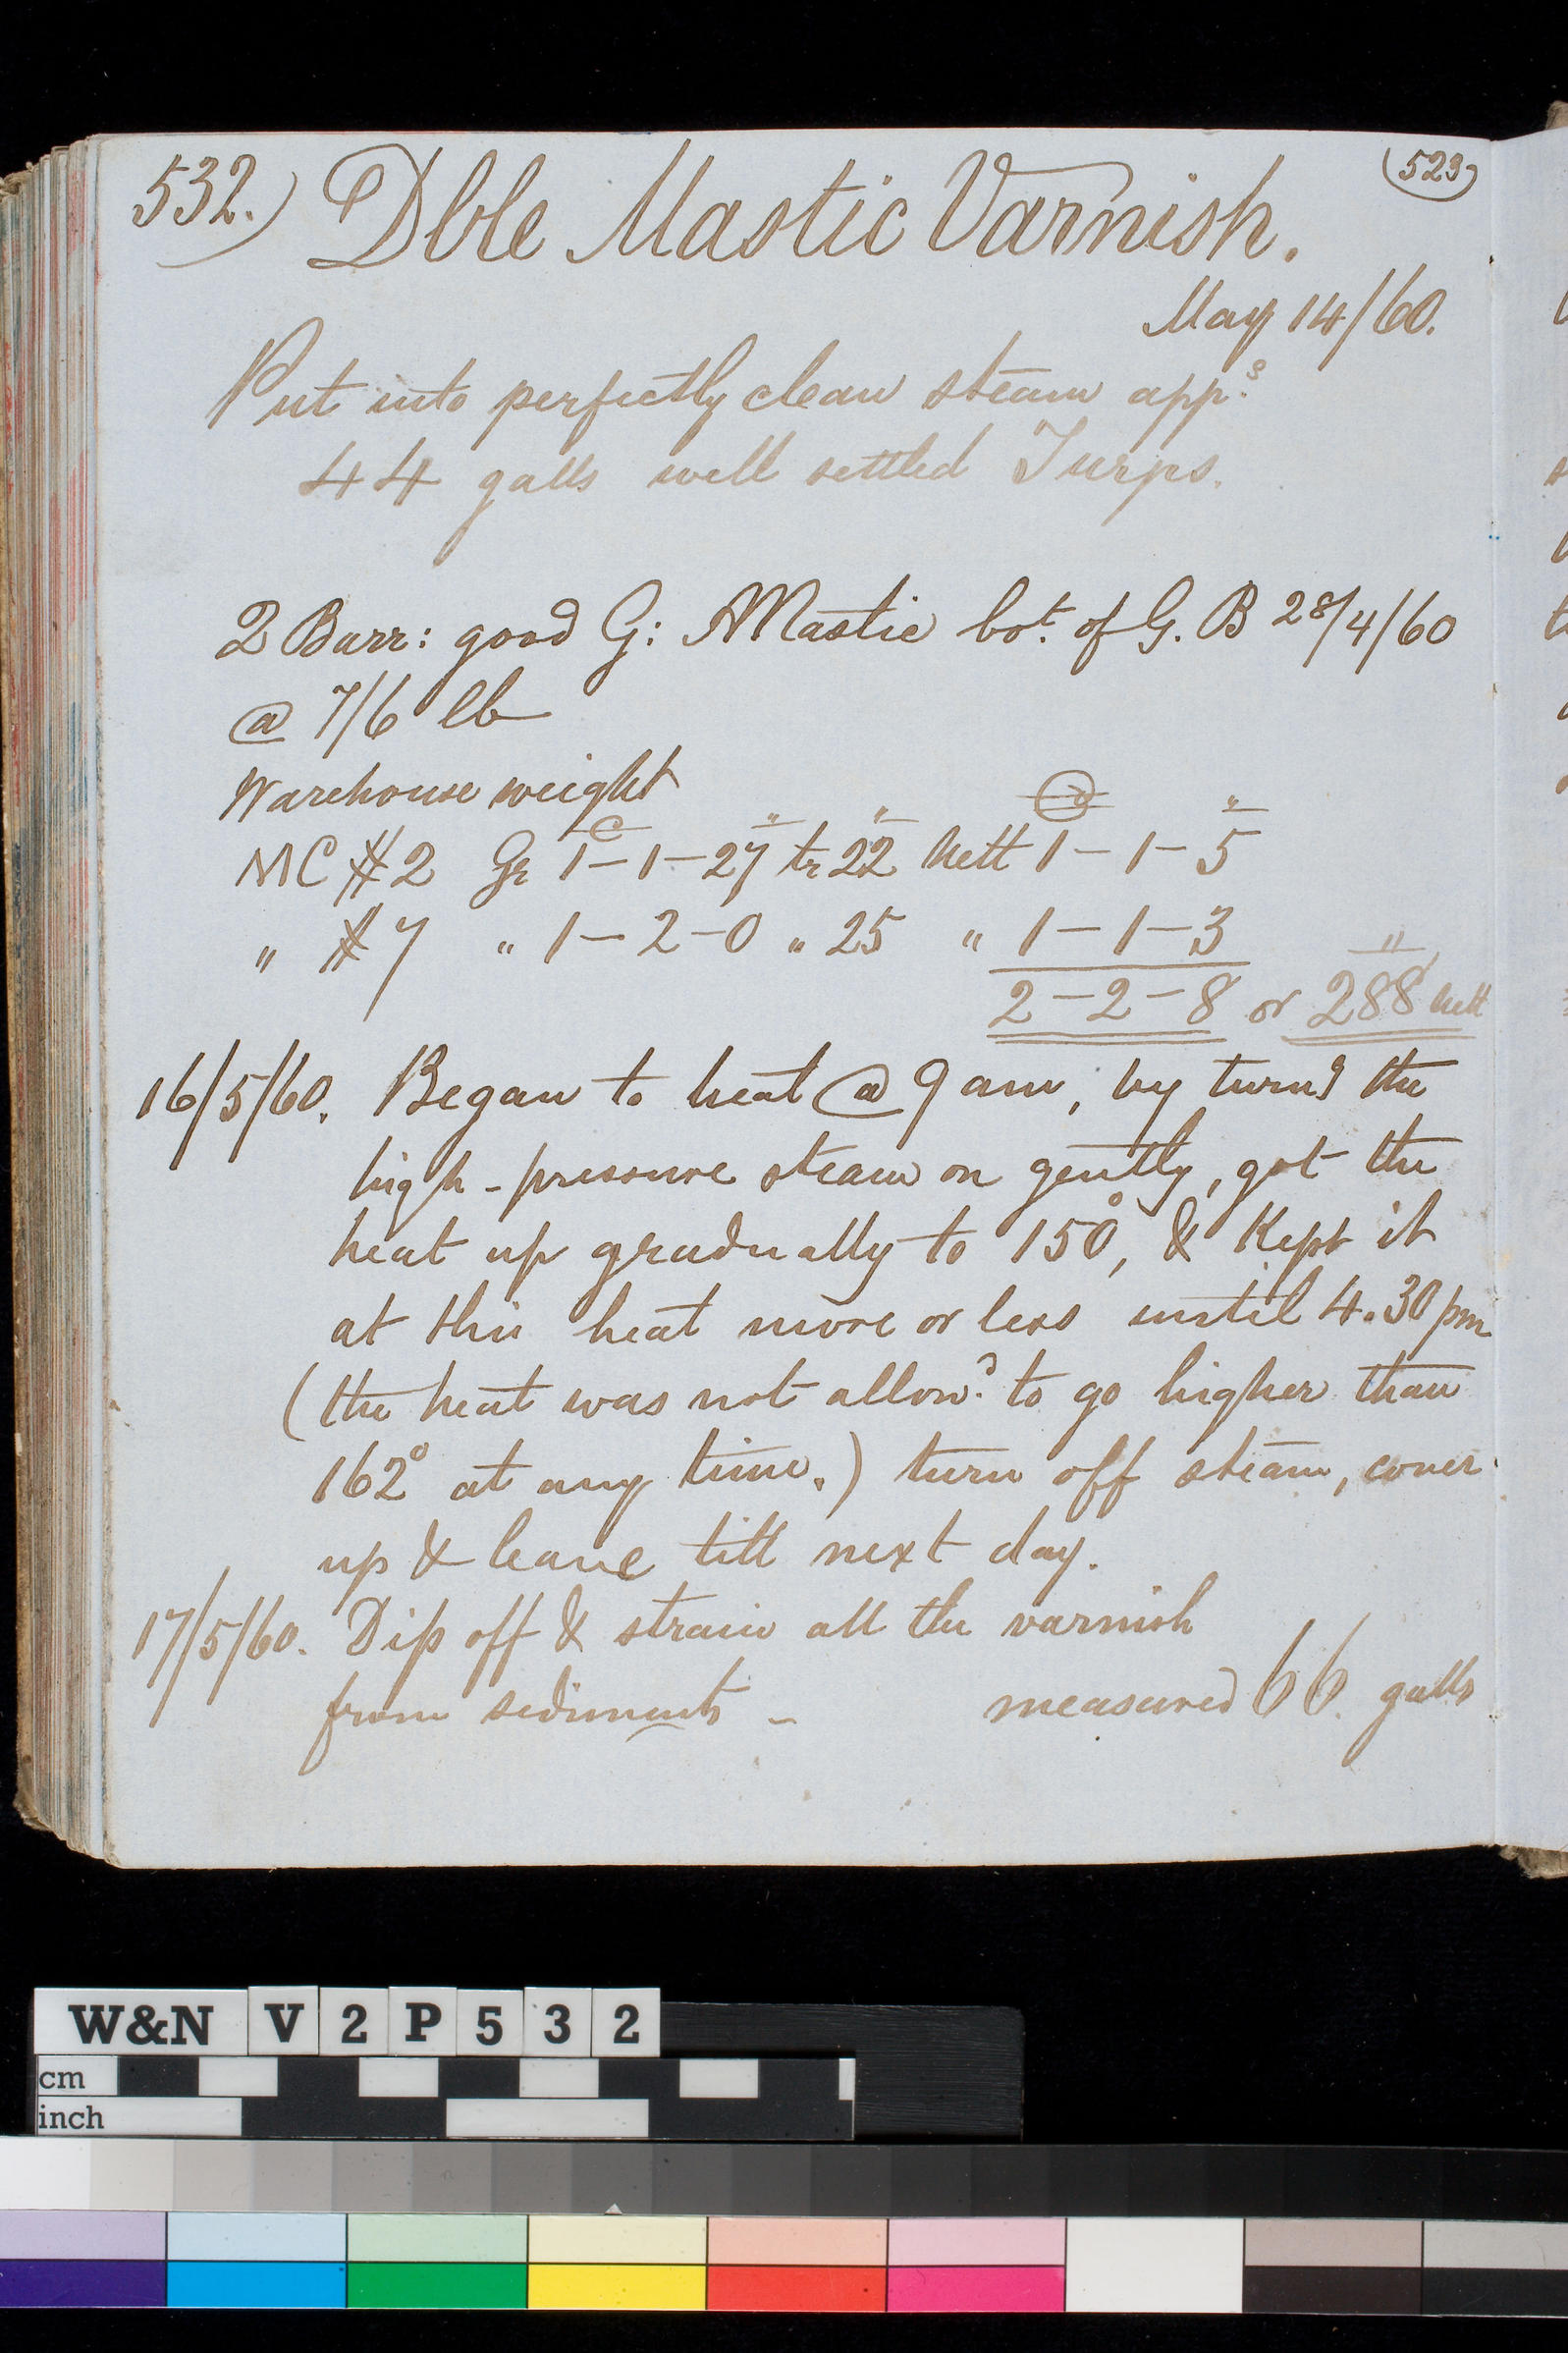 532.) Dble Mastic Varnish. (523)
May 14/60.
Put into perfectly clean steam apps.
44 galls well settled Turps.
2 Barr: good G: Mastic bot. of G. B 28/4/60
@ 7/6 lb
Warehouse weight
MC #2 Gr 1-1-27 tr 22 Nett 1-1-5
" #7 " 1-2-0 " 25 " 1-1-3
2-2-8 or 288 nett
16/5/60. Began to heat @ 9 am, by turng the
high-pressure steam on gently, got the
heat up gradually to 150°, & Kept it
at this heat more or less until 4.30 pm
(the heat was not allowd. to go higher than
162° at any time.) turn off steam, cover
up & leave till next day.
17/5/60. Dip off & strain all the varnish
from sediments - measured 66 galls
W&N V2P532
cm
inch